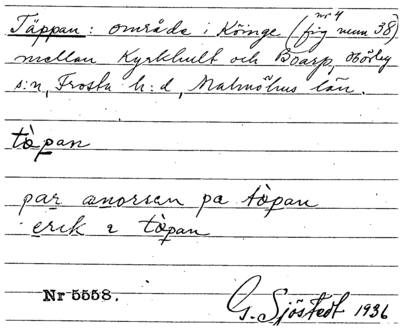 nr 4
Täppan: område i Köinge (fig num 38)
mellan Kyrkhult och Boarp, Hörby
s:n, Frosta h:d, Malmöhus län.
tòpan
par anorsen pa tòpan
erik i tòpan
Nr 5558.
G. Sjöstedt 1936